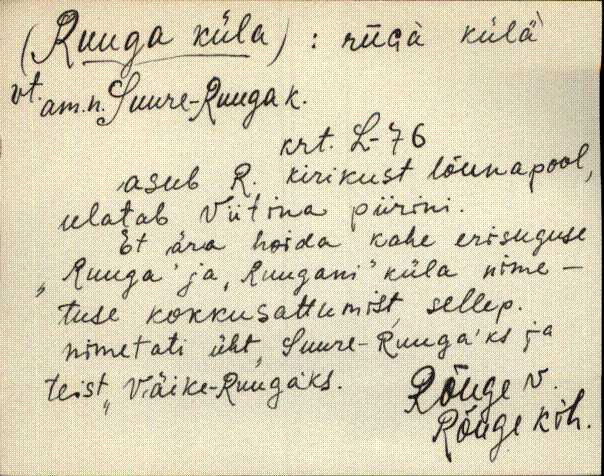 (Ruuga küla) : rūGà külä`
vt. am.n. Suure-Ruuga k.
krt. L-76
asub R. kirikust lõunapool,
ulatab Viitina piirini.
Et ära hoida kahe erisuguse
„Ruuga" ja „Ruugani" küla nime-
tuse kokkusattumist, sellep.
nimetati üht „Suure-Ruuga'ks ja
teist „Väike-Ruugaks.
Rõuge v.
Rõuge kih.